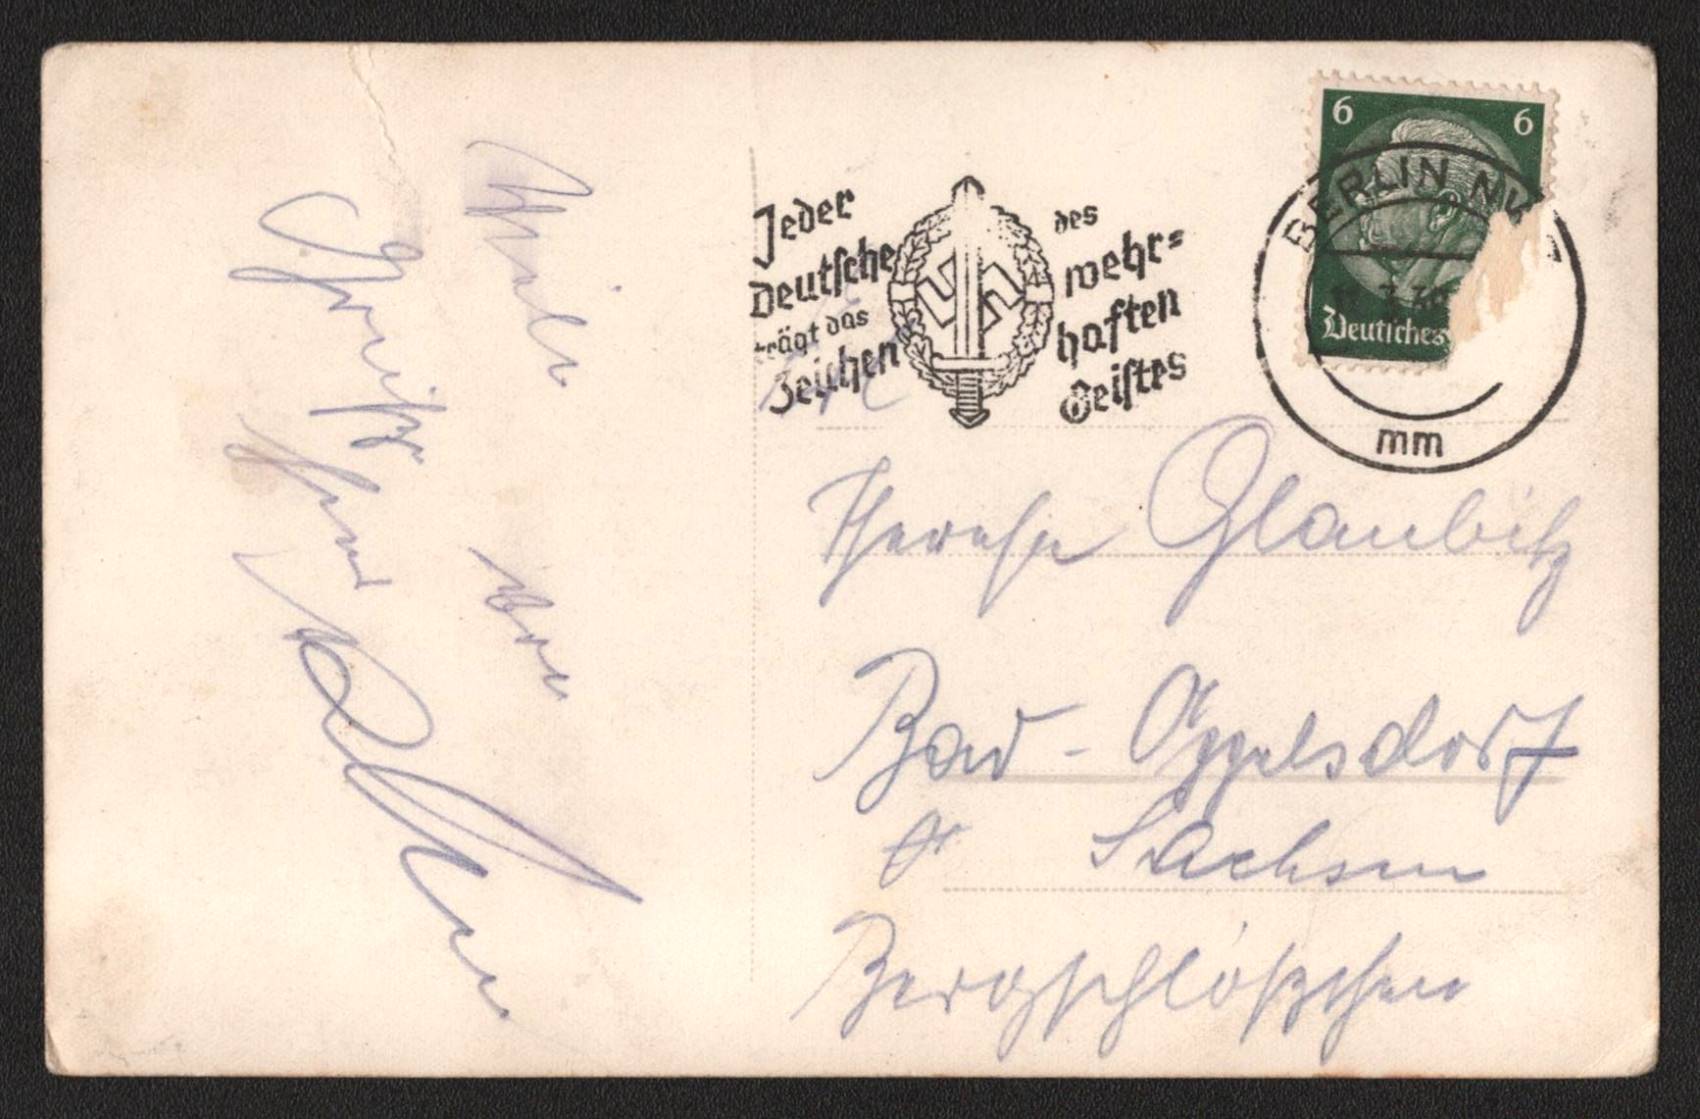 Viele
Grüße
von
Jeder
Deutsche
trägt das
Zeichen
des
wehr=
haften
Geistes
6 6
BERLIN NW
Deutsches
mm
Therese Glaubitz
Bad - Oppelsdorf
Sachsen
Bergschlößchen